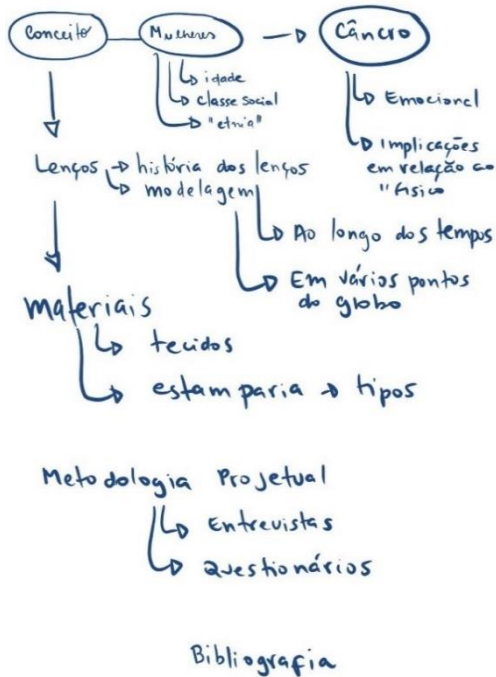 Conceito Mulheres → Câncro
idade
Classe Social
"etnia"
Emocional
Implicações
em relação ao
"físico
Lenços → história dos lenços
modelagem
Ao longo dos tempos
Em vários pontos
do globo
Materiais
tecidos
estamparia → tipos
Metodologia Projetual
Entrevistas
Questionários
Bibliografia